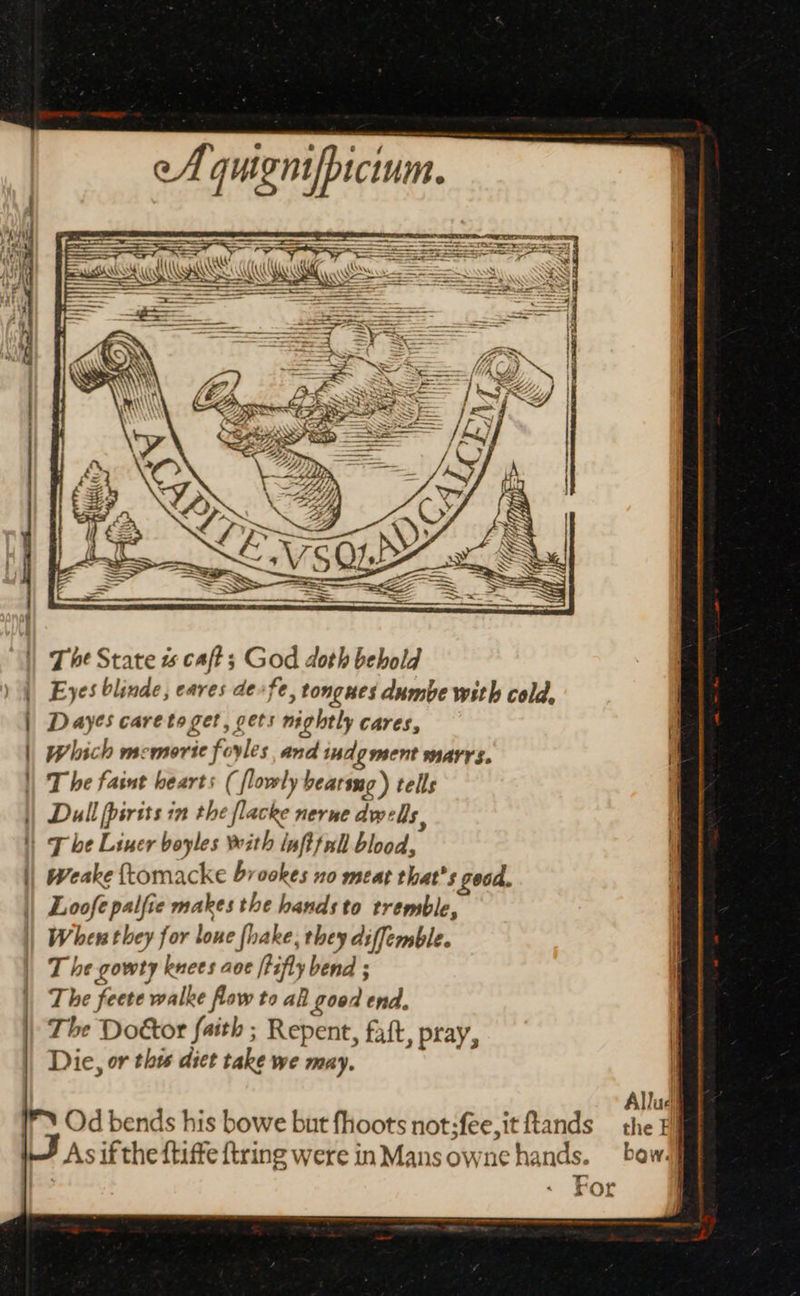 Aquigniſpicium.
A CAPITE VSQ, AD CALCEM
The State is caſt; God doth behold
Eyes blinde, eares deafe, tongues dumbe with cold,
Dayes care to get, gets nightly cares,
Which memorie foyles, and iudgment marrs.
The faint hearts (ſlowly bearing) tells
Dull ſpirits in the ſlacke nerue dwells,
The Liuer boyles with luſtfull blood,
Weake ſtomacke brookes no meat that's good.
Looſe palſie makes the hands to tremble,
When they for loue ſhake, they diſſemble.
The gowty knees doe ſtifly bend;
The feete walke ſlow to all good end.
The Doctor ſaith; Repent, faſt, pray,
Die, or this diet take we may.
Od bends his bowe but ſhoots not; ſee, it ſtands
As if the ſtiffe ſtring were in Mans owne hands.
For
the
bow.